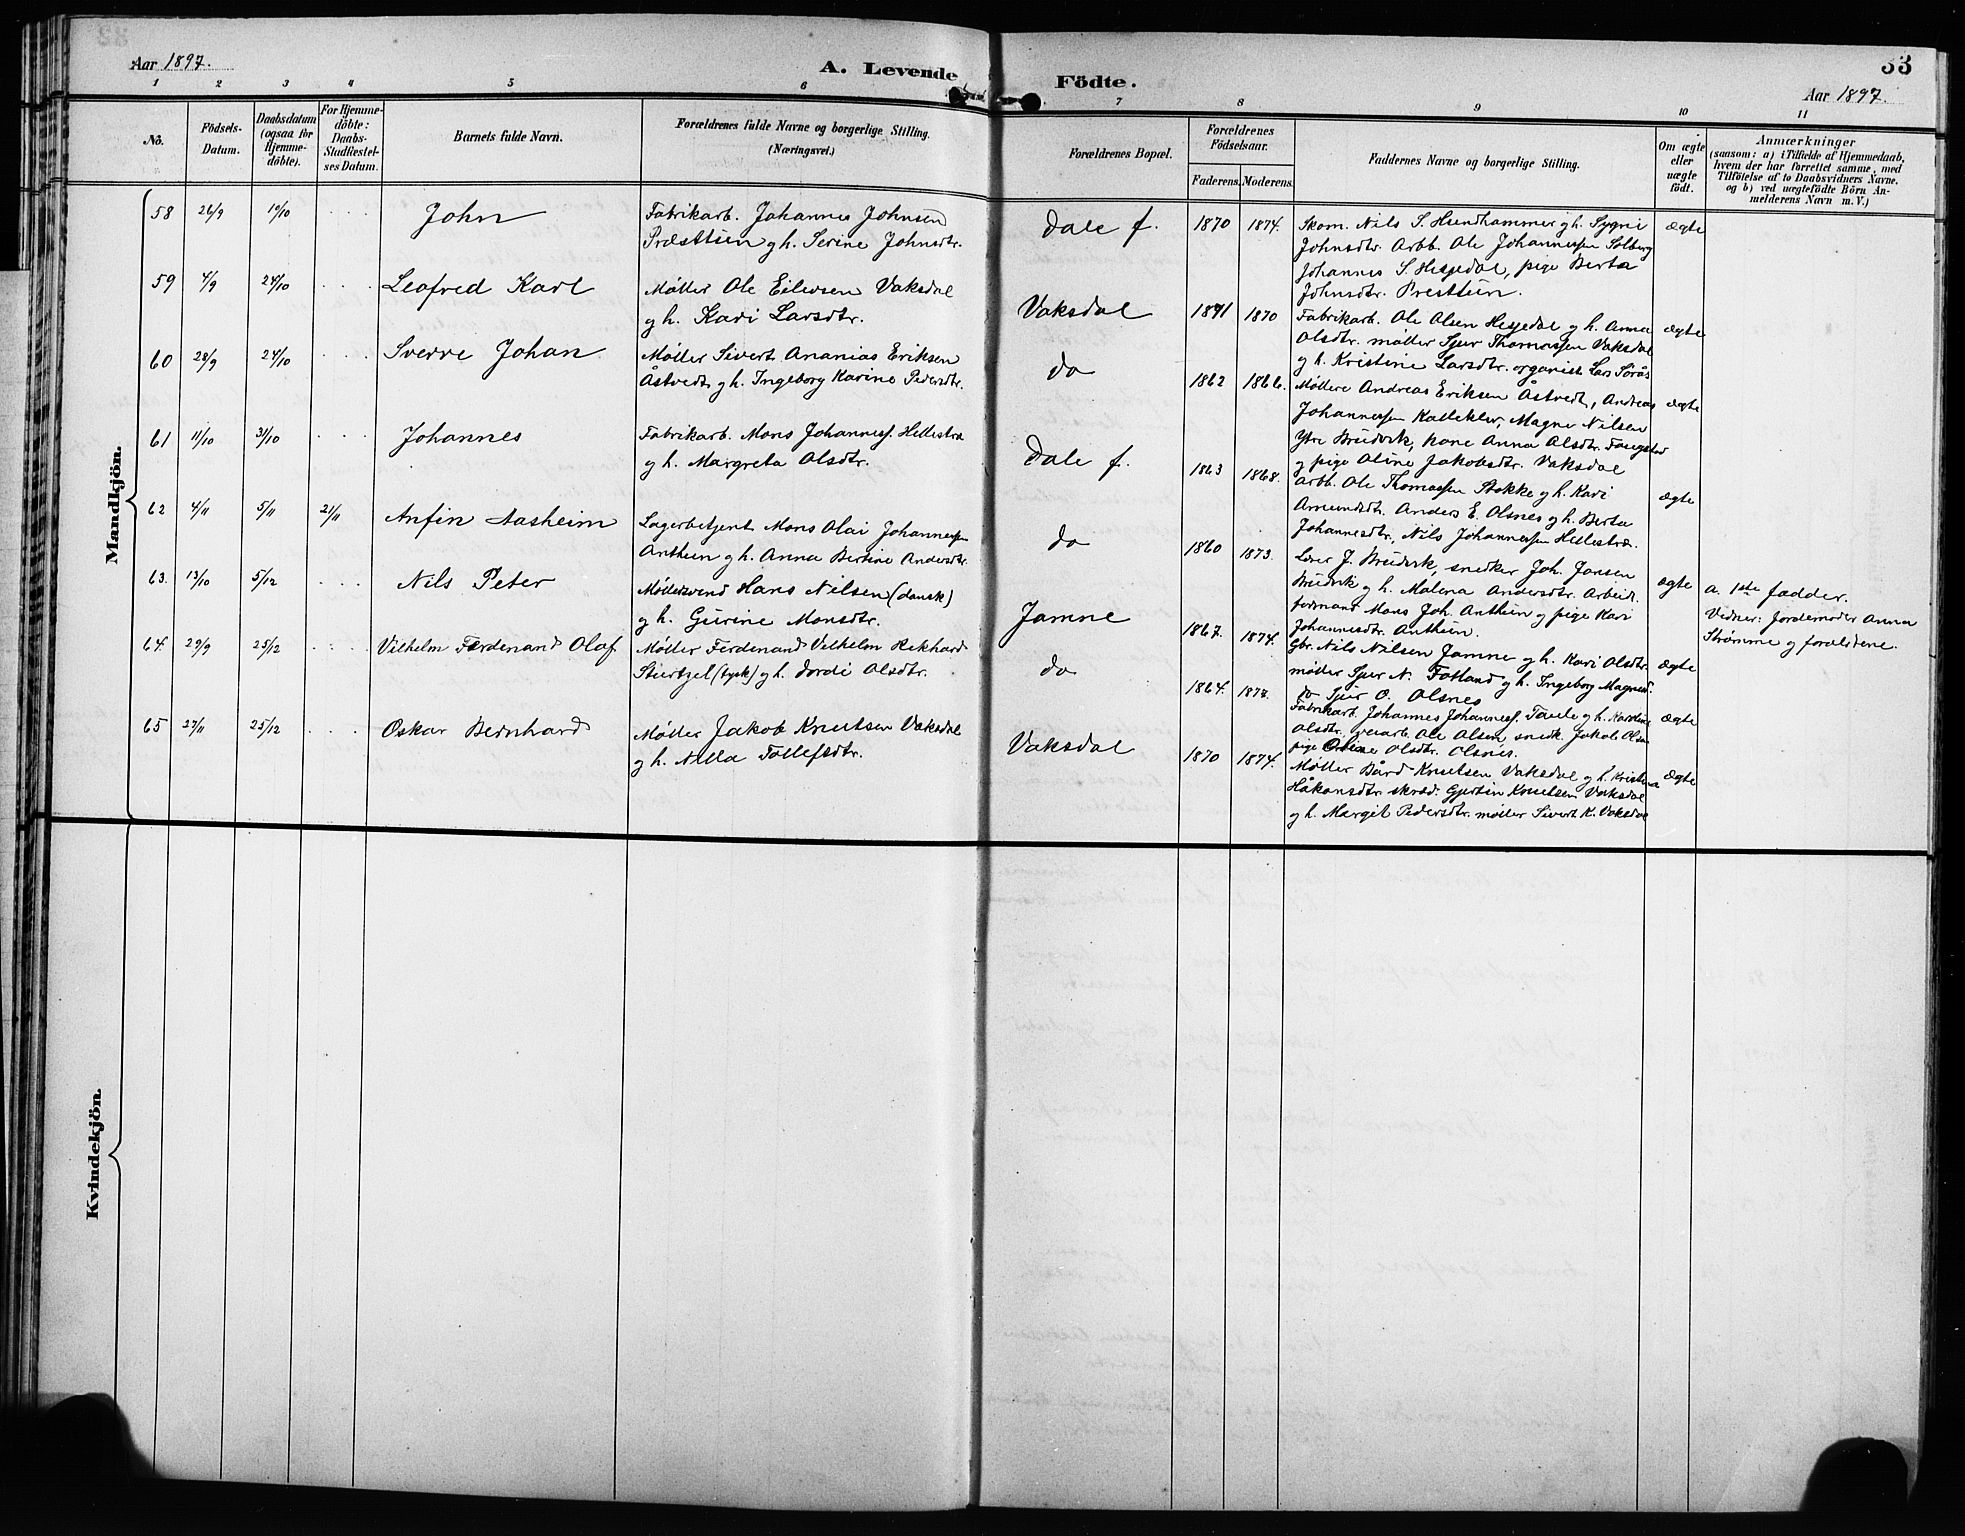 Aar 1897.
A. Levende
Födte.
33
Aar 1897.
1 2 3 4 5 6 7 8 9 10 11
No.
Födsels-Datum.
Daabsdatum (ogsaa for Hjemme-döbte).
For Hjemme-döbte: Daabs-Stadfæstel-ses Datum.
Barnets fulde Navn.
Forældrenes fulde Navne og borgerlige Stilling.
(Næringsvei.)
Forældrenes Bopæl.
Forældrenes Födselsaar.
Faderens. Moderens.
Faddernes Navne og borgerlige Stilling.
Om ægte eller uægte födt.
Anmærkninger
(saasom: a) i Tilfælde af Hjemmedaab,
hvem der har forrettet samme, med
Tilföielse af to Daabsvidners Navne,
og b) ved uægtefödte Börn An-
melderens Navn m. V.)
Mandkjön.
58 26/9 10/10 John
Fabrikarb. Johannes Johnsen
Præsttun og h. Serine Johnsdtr.
Dale f. 1870 1874.
Skom. Nils S. Hundhammer og h. Sygni
Johnsdtr. Arbb. Ole Johannessen Solberg
Johannes S. Hesjedal, pige Berta
Johnsdtr. Presttun.
ægte
59 4/9 24/10 Leofred Karl
Møller Ole Eilevsen Vaksdal
og h. Kari Larsdtr.
Vaksdal 1871 1870
Fabrikarb. Ole Olsen Hesjedal og h. Anna
Olsdtr. møller Sjur Thomassen Vaksdal
og h. Kristine Larsdtr. organist Lars Sørås
ægte
60 28/9 24/10 Sverre Johan
Møller Sivert Ananias Eriksen
Åstvedt og h. Ingeborg Karine Pedersdtr.
do 1862 1866.
Møllere Andreas Eriksen Åstvedt, Andreas
Johannessen Kalleklev, Magne Nilsen
Ytre Bruvik, kone Anna Olsdtr. Faugstad
og pige Oline Jakobsdtr. Vaksdal
ægte
61 11/10 31/10 Johannes
Fabrikarb. Mons Johanness. Hellestræ
og h. Margreta Olsdtr.
Dale f. 1863 1868.
Arbb. Ole Thomassen Stokke og h. Kari
Amundsdtr. Anders E. Olsnes og h. Berta
Johannesdtr. Nils Johannessen Hellestræ.
ægte
62 4/11 5/11 21/11 Anfin Aasheim
Lagerbetjent Mons Olai Johannessen
Anthun og h. Anna Bertine Andersdtr.
do 1860 1873.
Lærer J. Bruvik, snedker Joh. Jansen
Bruvik og h. Malena Andersdtr. Arbeid.
formand Mons Joh. Anthun og pige Kari
Johannesdtr. Anthun.
ægte
a. 1ste fadder.
Vidner: Jordemoder Anna
Strømme og forældrene.
63. 13/10 5/12 Nils Peter
Møllersvend Hans Nilsen (dansk)
og h. Gurine Monsdtr.
Jamne 1867. 1874.
Gbr. Nils Nilsen Jamne og h. Kari Olsdtr.
møller Sjur N. Fotland og h. Ingeborg Magnesd.
do Sjur O. Olsnes
ægte
64. 29/9 25/12 Vilhelm Ferdenand Olaf
Møller Ferdenand Vilhelm Rekhard
Sturtzel (tysk) og h. Jordi Olsdtr.
do 1864.
Fabrikarb. Johannes Johanness. Taule og h. Karoline
Olsdtr. veiarb. Ole Olsen snedk. Jakob Olsen
pige Olsdtr. Olsnes.
ægte
65 27/11 25/12 Oskar Bernhard
Møller Jakob Knutsen Vaksdal
og h. Nilla Tollefsdtr.
Vaksdal 1870 1874.
Møller Bård Knutsen Vaksdal og h. Kristina
Håkonsdtr. skræd. Gjertin Knutsen Vaksdal
og h. Margit Pedersdtr. møller Sivert K. Vaksdal
ægte
Kvindekjön.